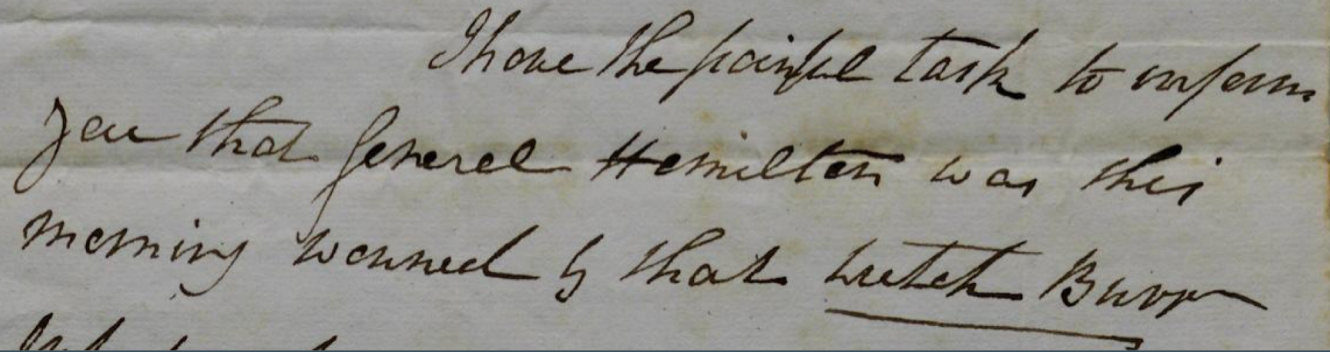 I have the painful task to inform
you that General Hamilton was this
morning wouned by that wretch Burr